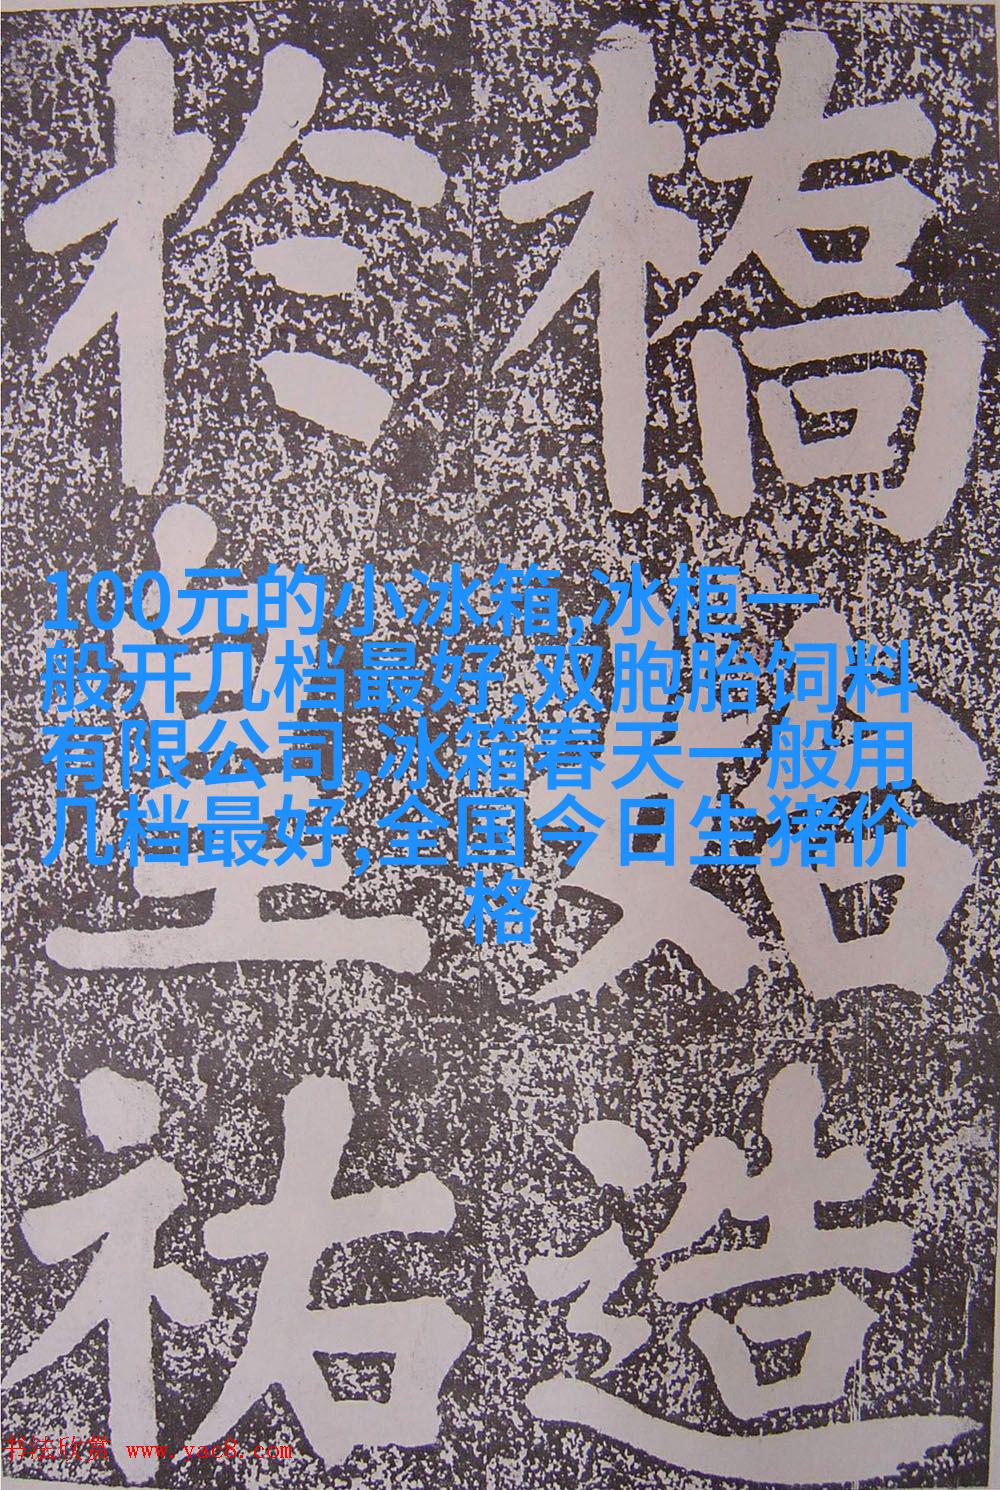 橋始造
於皇祐
100元的小冰箱,冰柜一
般开几档最好,双胞胎饲料
有限公司,冰箱春天一般用
几档最好,全国今日生猪价
格
书法欣赏 www.yac8.com